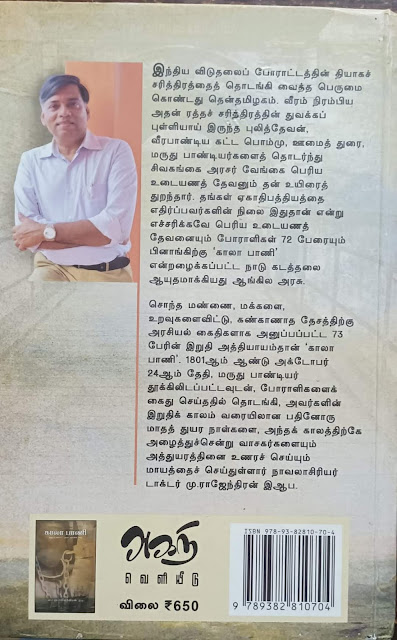 இந்திய விடுதலைப் போராட்டத்தின் தியாகச்
சரித்திரத்தைத் தொடங்கி வைத்த பெருமை
கொண்டது தென்தமிழகம். வீரம் நிரம்பிய
அதன் ரத்தச் சரித்திரத்தின் துவக்கப்
புள்ளியாய் இருந்த புலித்தேவன்,
வீரபாண்டிய கட்ட பொம்மு, ஊமைத் துரை,
மருது பாண்டியர்களைத் தொடர்ந்து
சிவகங்கை அரசர் வேங்கை பெரிய
உடையணத் தேவனும் தன் உயிரைத்
துறந்தார். தங்கள் ஏகாதிபத்தியத்தை
எதிர்ப்பவர்களின் நிலை இதுதான் என்று
எச்சரிக்கவே பெரிய உடையணத்
தேவனையும் போராளிகள் 72 பேரையும்
பினாங்கிற்கு 'காலா பாணி'
என்றழைக்கப்பட்ட நாடு கடத்தலை
ஆயுதமாக்கியது ஆங்கில அரசு.
சொந்த மண்ணை, மக்களை,
உறவுகளைவிட்டு, கண்காணாத தேசத்திற்கு
அரசியல் கைதிகளாக அனுப்பப்பட்ட 73
பேரின் இறுதி அத்தியாயம்தான் 'காலா
பாணி'. 1801ஆம் ஆண்டு அக்டோபர்
24ஆம் தேதி, மருது பாண்டியர்
தூக்கிலிடப்பட்டவுடன், போராளிகளைக்
கைது செய்ததில் தொடங்கி, அவர்களின்
இறுதிக் காலம் வரையிலான பதினோரு
மாதத் துயர நாள்களை, அந்தக் காலத்திற்கே
அழைத்துச்சென்று வாசகர்களையும்
அத்துயரத்தினை உணரச் செய்யும்
மாயத்தைச் செய்துள்ளார் நாவலாசிரியர்
டாக்டர் மு.ராஜேந்திரன் இஆப.
காலா பாணி
அகநி
வெளியீடு
விலை ₹650
ISBN 978-93-82810-70-4
9 789382 810704